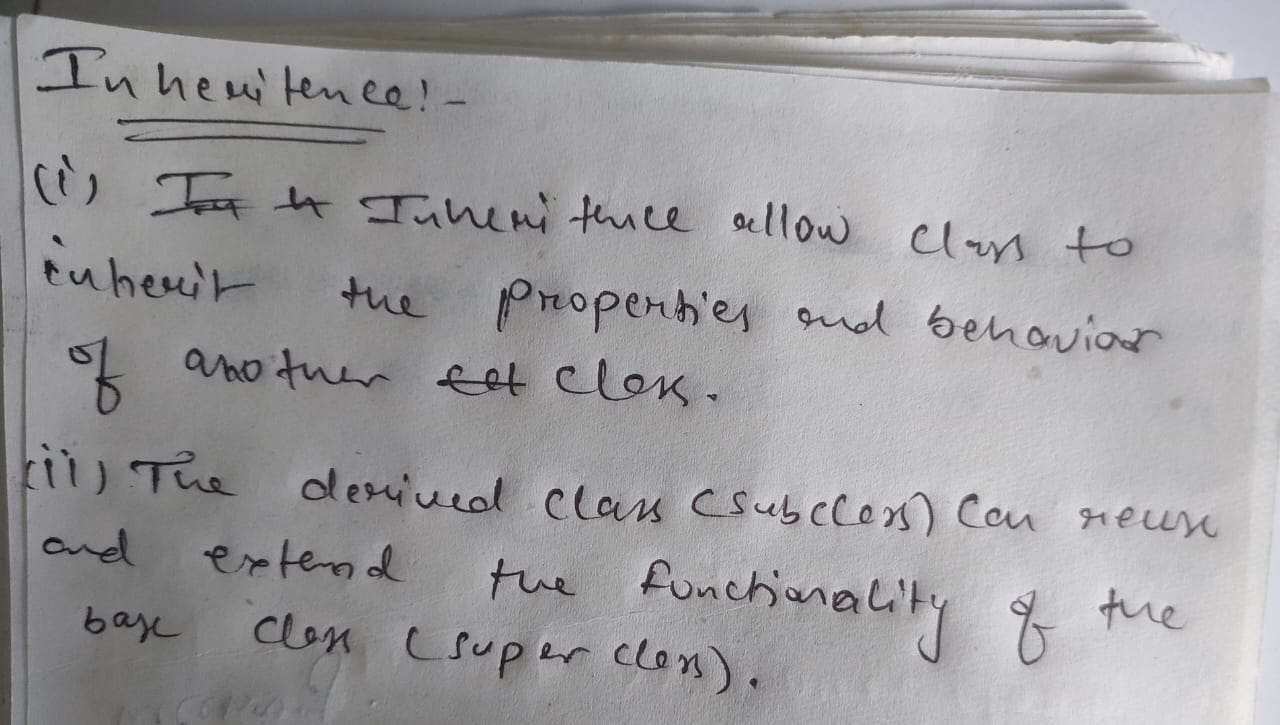 Inheritence:-
(i) Inheritence allow class to
inherit the properties and behavior
of another class.
(ii) The derived class (subclass) can reuse
and extend the functionality of the
base class (super class).